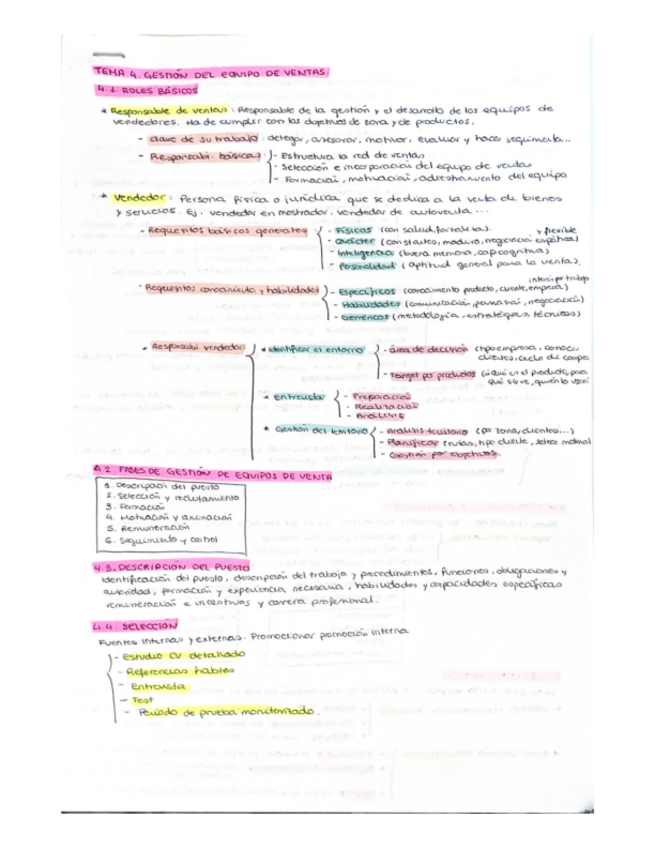 TEMA 4. GESTIÓN DEL EQUIPO DE VENTAS
4.1. ROLES BÁSICOS
* Responsable de ventas: Responsable de la gestión y el desarrollo de los equipos de
vendedores. Ha de cumplir con los objetivos de zona y de productos.
- Clave de su trabajo: delegar, asesorar, motivar, evaluar y hacer seguimiento...
- Responsabi. básicas: - Estructura la red de ventas
- Selección e incorporación del equipo de ventas
- Formación, motivación, adiestramiento del equipo
* Vendedor: Persona física o jurídica que se dedica a la venta de bienes
y servicios. Ej: vendedor en mostrador, vendedor de autoventa...
- Requisitos básicos generales - Físicos (con salud, fortaleza). y flexible
- Carácter (constantes, maduro, negociación
- Inteligencia (buena memoria, cap cognitiva)
- Personalidad (Aptitud general para la venta),
- Requisitos conocimiento y habilidades - Específicos (conocimiento producto, cliente, empresa)
- Habilidades (comunicación, persuasi, negociación)
- Genéricos (metodología, estrategias, técnicas)
- Responsabi vendedor * Identificar el entorno - área de decisión (tipo empresa, conoc.
clientes, ciclo de compa
- Target por productos (a qué es el producto, para
qué sirve, quién lo usa)
* Entrevista - Preparación
- Realización
- Análisis
* Gestión del territorio - Análisis territorio (por zona, clientes...)
- Planificar (rutas, tipo cliente, selecc material
- Gestión por objetivos.
4.2. FASES DE GESTIÓN DE EQUIPOS DE VENTA
1. Descripción del puesto
2. Selección y reclutamiento
3. Formación
4. Motivación y animación
5. Remuneración
6. Seguimiento y control
4.3. DESCRIPCIÓN DEL PUESTO
Identificación del puesto, descripción del trabajo y procedimientos, funciones, obligaciones y
autoridad, formación y experiencia necesaria, habilidades y capacidades específicas
remuneración e incentivos y carrera profesional.
4.4 SELECCIÓN
Fuentes internas y externas. Promocionar promoción interna
- Estudio CV detallado
- Referencias hables
- Entrevista
- Test
- Periodo de prueba monitorizado.